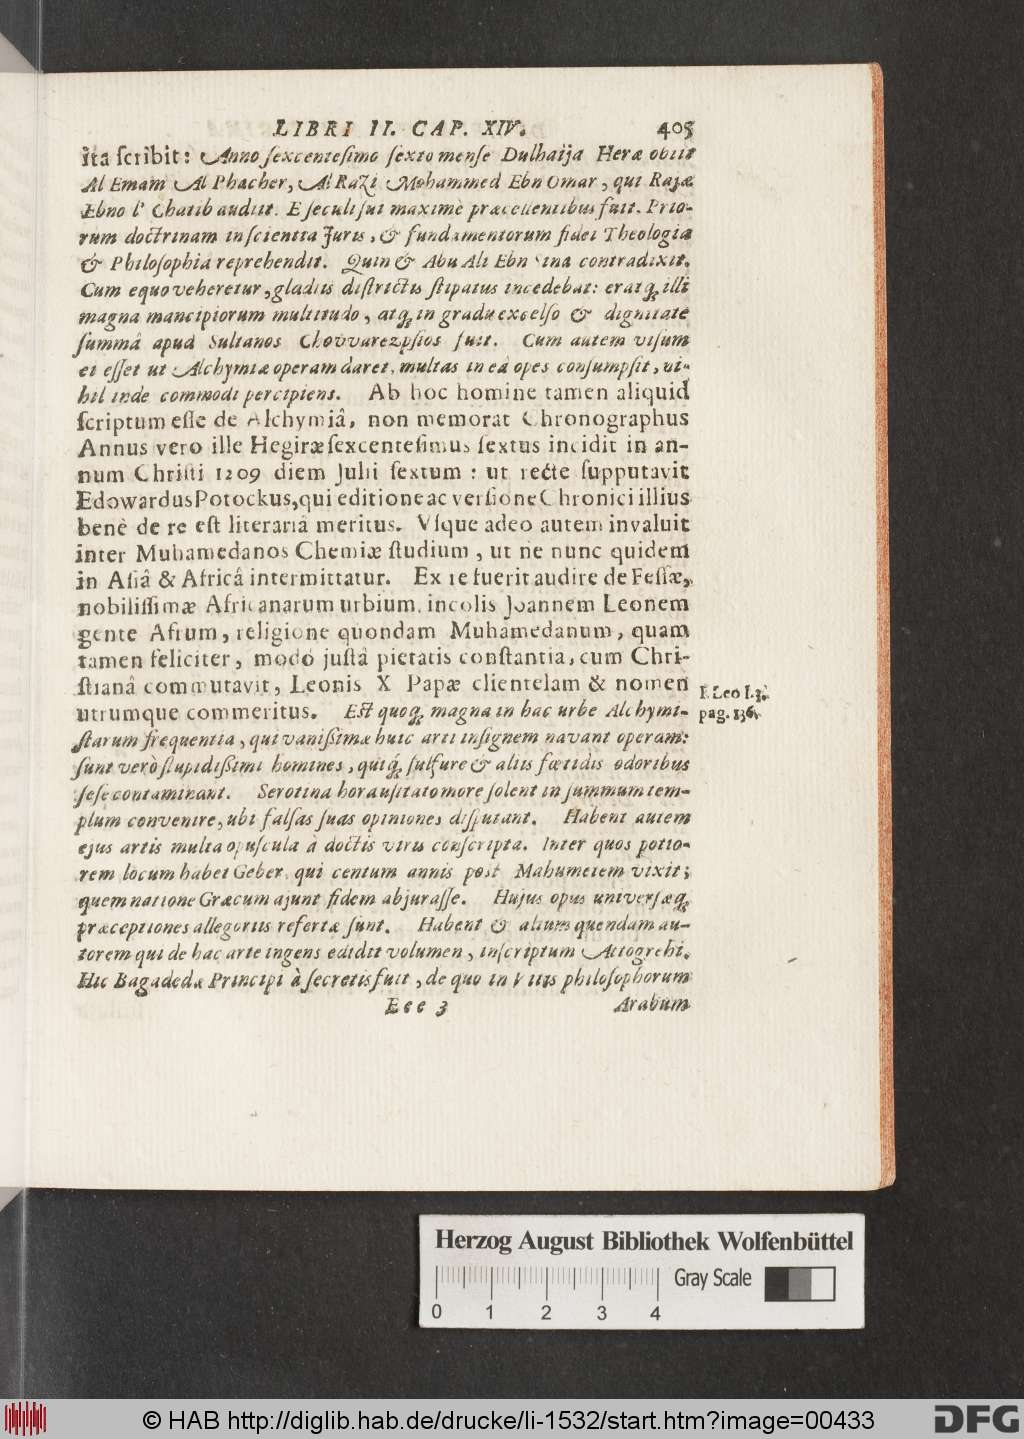 LIBRI II. CAP. XIV. 405
ita ſcribit: Anno ſexcenteſimo ſexto menſe Dulhaija Heræ obiit
Al Emam Al Phacher, Al Razi Mohammed Ebn Omar, qui Rajæ
Ebno l' Chatib audiit. E ſeculi ſui maximè præcellentibus fuit. Prio-
rum doctrinam in ſcientia Juris, & fundamentorum fidei Theologia
& Philoſophiâ reprehendit. Quin & Abu Ali Ebn Sina contradixit.
Cum equo veheretur, gladiis diſtrictis ſtipatus incedebat: eratq; illi
magna mancipiorum multitudo, atq; in gradu excelſo & dignitate
ſummâ apud Sultanos Chovvarezpſios fuit. Cum autem viſum
ei eſſet ut Alchymiæ operam daret, multas in eâ opes conſumpſit, ni-
hil inde commodi percipiens. Ab hoc homine tamen aliquid
ſcriptum eſſe de Alchymiâ, non memorat Chronographus
Annus vero ille Hegiræ ſexcenteſimus ſextus incidit in an-
num Chriſti 1209 diem Julii ſextum: ut recte ſupputavit
Edowardus Potockus, qui editione ac verſione Chronici illius
benè de re eſt literariâ meritus. Vſque adeo autem invaluit
inter Muhamedanos Chemiæ ſtudium, ut ne nunc quidem
in Aſiâ & Africâ intermittatur. Ex re fuerit audire de Feſſæ,
nobiliſſimæ Africanarum urbium, incolis Joannem Leonem
gente Afrum, religione quondam Muhamedanum, quam
tamen feliciter, modò juſtâ pietatis conſtantia, cum Chri-
ſtianâ commutavit, Leonis X Papæ clientelam & nomen
utrumque commeritus. Eſt quoq; magna in hac urbe Alchymi-
I. Leo l.3.
pag. 136.
ſtarum frequentia, qui vaniſſimæ huic arti inſignem navant operam:
ſunt verò ſtupidiſſimi homines, quiq; ſulfure & aliis fœtidis odoribus
ſeſe contaminant. Serotina hora uſitato more ſolent in ſummum tem-
plum convenire, ubi falſas ſuas opiniones diſputant. Habent autem
ejus artis multa opuſcula à doctis viris conſcripta. Inter quos potio-
rem locum habet Geber, qui centum annis post Mahumetem vixit;
quem natione Græcum ajunt fidem abjuraſſe. Hujus opus univerſæq;
præceptiones allegoriis refertæ ſunt. Habent & alium quendam au-
torem qui de hac arte ingens edidit volumen, inſcriptum Attogrehi.
Hic Bagadedæ Principi à ſecretis fuit, de quo in Vitis philoſophorum
Eee 3 Arabum
Herzog August Bibliothek Wolfenbüttel
Gray Scale
0 1 2 3 4
© HAB http://diglib.hab.de/drucke/li-1532/start.htm?image=00433
DFG